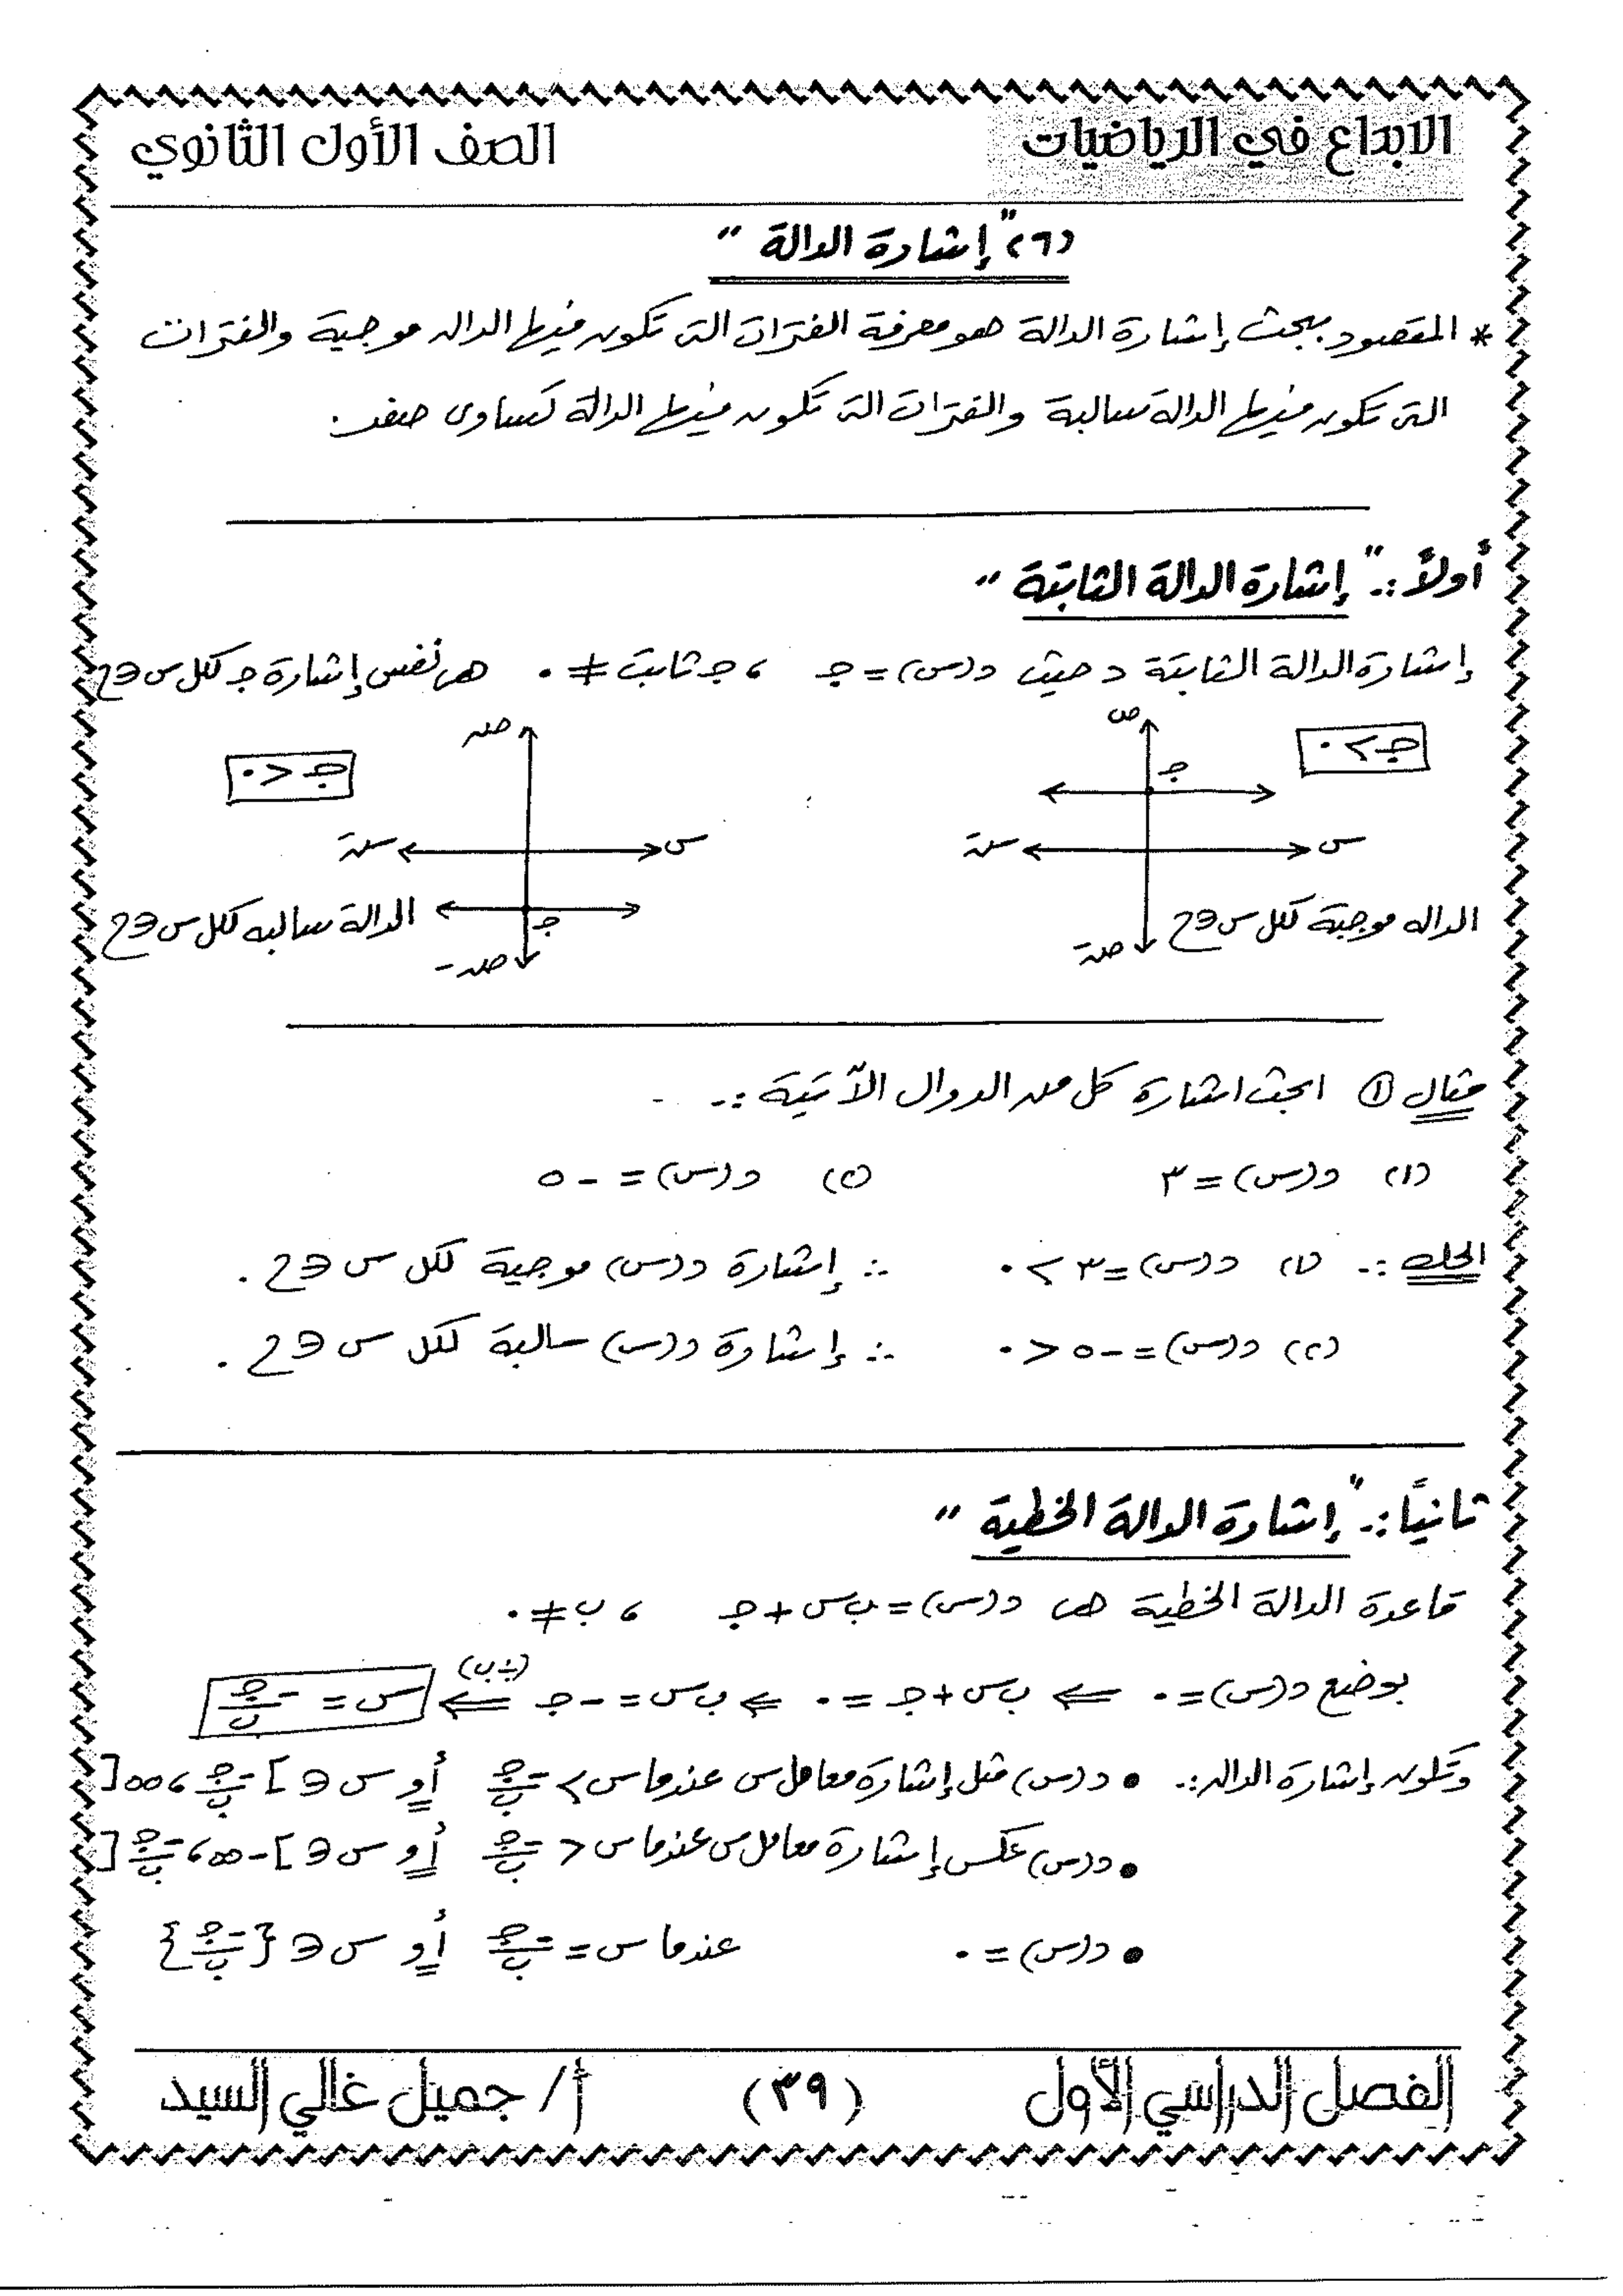 الابداع في الرياضيات
الصف الأول الثانوي
(٦) " إشارة الدالة "
* المقصود ببحث إشارة الدالة هو معرفة الفترات التى تكون فيها الداله موجبة والفترات
التى تكون فيها الدالة سالبة والفترات التى تكون فيها الدالة تساوى صفر.
أولاً :- " إشارة الدالة الثابتة "
إشارة الدالة الثابتة د حيث د(س) = جـ ، جـ ثابت ≠ ٠ هى نفس إشارة جـ لكل س ∋ ح
جـ > ٠
ص
جـ
س
سَ
صَ
الداله موجبة لكل س ∋ ح
جـ < ٠
ص
س
سَ
جـ
صَ
الدالة سالبه لكل س ∋ ح
مثال ① ابحث اشارة كل من الدوال الآتية :-
(١) د(س) = ٣
(٢) د(س) = -٥
الحل :- (١) د(س) = ٣ > ٠ ∴ إشارة د(س) موجبة لكل س ∋ ح .
(٢) د(س) = -٥ < ٠ ∴ إشارة د(س) سالبة لكل س ∋ ح .
ثانياً :- " إشارة الدالة الخطية "
قاعدة الدالة الخطية هى د(س) = ب س + جـ ، ب ≠ ٠
بوضع د(س) = ٠ ⇐ ب س + جـ = ٠ ⇐ ب س = -جـ ⇐ (÷ب) س = -جـ/ب
وتكون إشارة الداله :- • د(س) مثل إشارة معامل س عندما س > -جـ/ب أو س ∋ ]-جـ/ب ، ∞[
• د(س) عكس إشارة معامل س عندما س < -جـ/ب أو س ∋ ]-∞ ، -جـ/ب[
• د(س) = ٠ عندما س = -جـ/ب أو س ∋ {-جـ/ب}
الفصل الدراسي الأول
(٣٩)
أ/ جميل غالي السيد